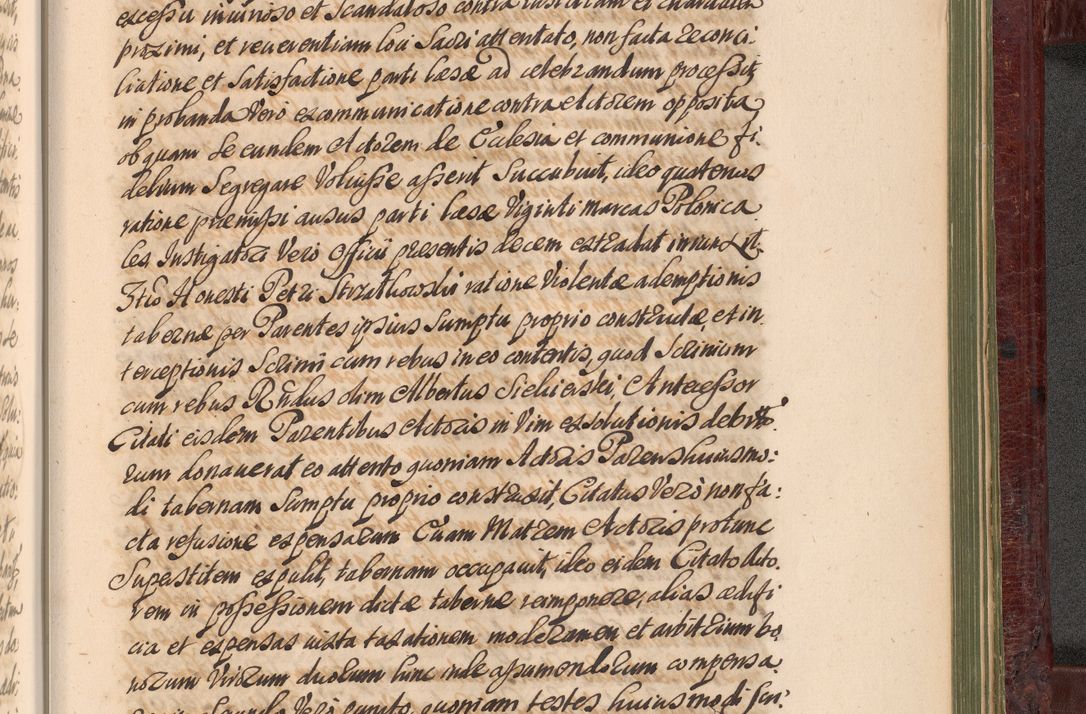 excessu injurioso et Scandaloso contra
proximi, et reverentiam loci Sacri attentato, non facta reconci:
liatione et Satisfactione parti læsæ ad celebrandum processit
in probanda Vero excommunicatione contra Actorem opposita
ob quam Se eundem Actorem de Ecclesia et communione fi:
delium Segregare Voluisse asserit Succubuit, ideo quatenus
ratione præmissi ausus parti læsæ Viginti Marcas Polonica
les Instigatori Vero Officii præsentis decem extradat
Honesti Petri Strzałkowski ratione Violentæ ademptionis
tabernæ per Parentes ipsius Sumptu proprio constructæ, et in
terceptionis Scrinii cum rebus in eo contentis, quod Scrinium
cum rebus Rndus olim Albertus Sielicerski, Antecessor
Citati eisdem Parentibus Actoris in Vim exsolutionis debito
rum donaverat eo attento quoniam Actoris Parens huiusmo:
di tabernam Sumptu proprio construxit, Citatus Verò non fa:
cta refusione expensarum Cuam Matrem Actoris protunc
Superstitem expulit, tabernam occupavit, ideo eidem Citato Acto.
rem in possessionem dictæ tabernæ reimponere, alias ædifi
cia et expensas iuxta taxationem moderamen et arbitrium bo
norum Virorum duorum hinc inde assumendorum compensa.
Secundo Vero puncto, quoniam testes huiusmodi